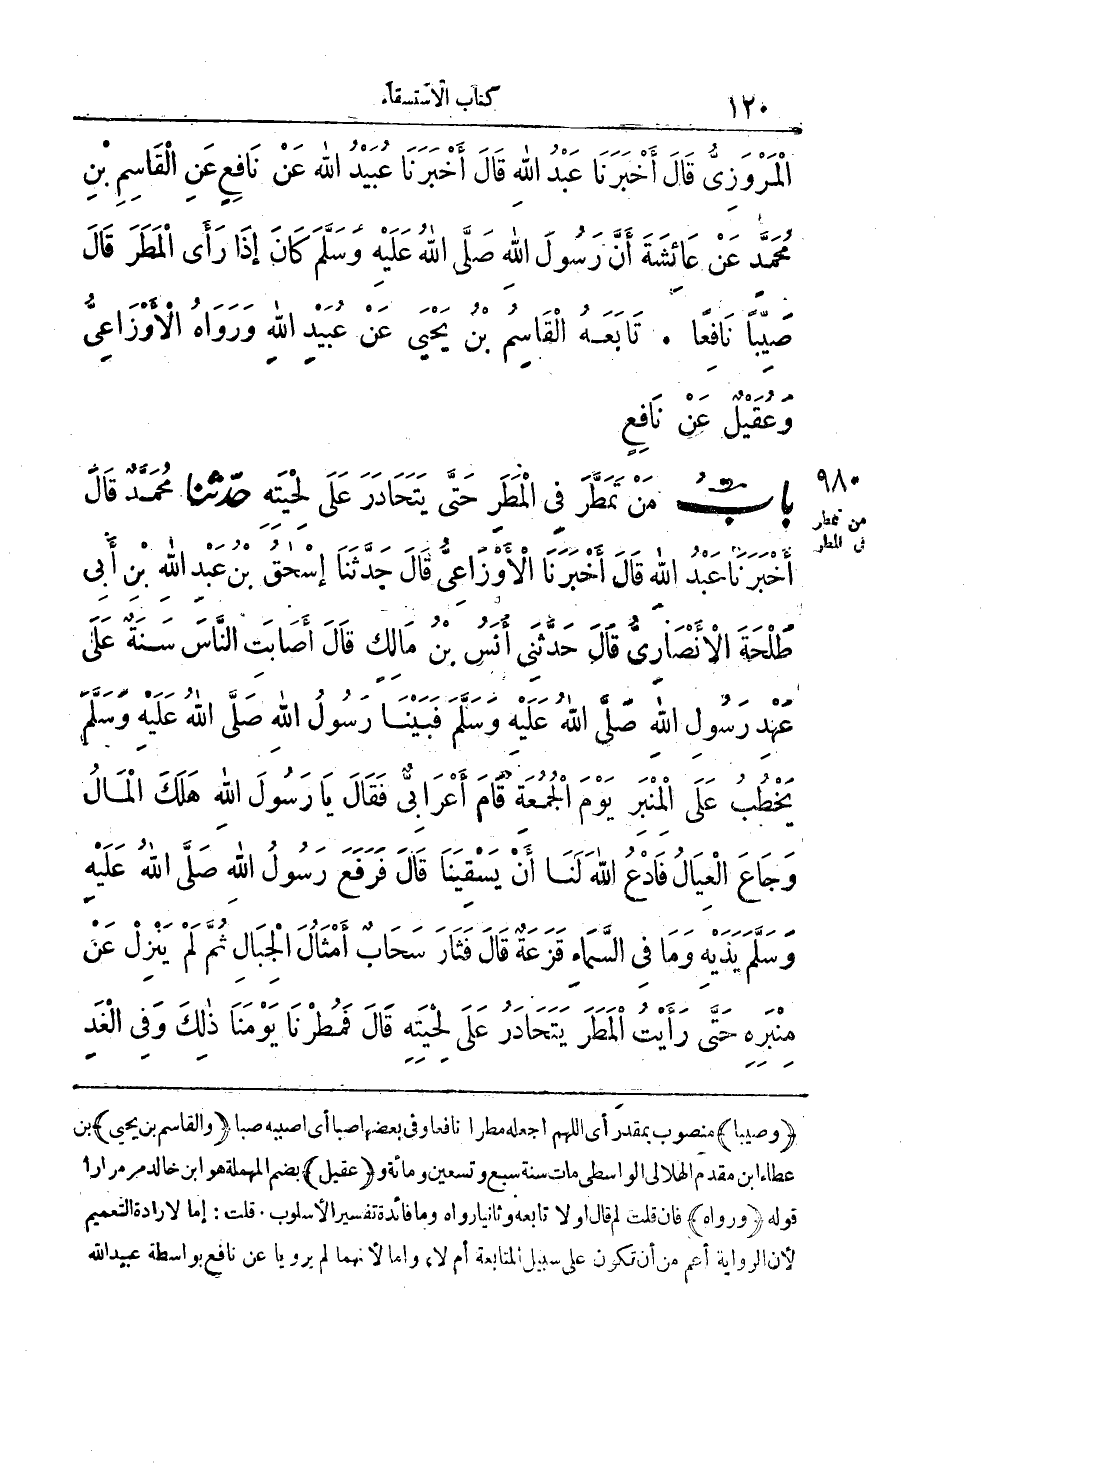 ١٢٠ كتاب الاستسقاء
الْمَرْوَزِىُّ قَالَ أَخْبَرَنَا عَبْدُ اللهِ قَالَ أَخْبَرَنَا عُبَيْدُ اللهِ عَنْ نَافِعٍ عَنِ الْقَاسِمِ بْنِ
مُحَمَّدٍ عَنْ عَائِشَةَ أَنَّ رَسُولَ اللهِ صَلَّى اللهُ عَلَيْهِ وَسَلَّمَ كَانَ إِذَا رَأَى الْمَطَرَ قَالَ
صَيِّبًا نَافِعًا . تَابَعَهُ الْقَاسِمُ بْنُ يَحْيَى عَنْ عُبَيْدِ اللهِ وَرَوَاهُ الْأَوْزَاعِىُّ
وَعُقَيْلٌ عَنْ نَافِعٍ
٩٨٠
من تمطر
فى المطر
بَابُ مَنْ تَمَطَّرَ فِى الْمَطَرِ حَتَّى يَتَحَادَرَ عَلَى لِحْيَتِهِ حَدَّثَنَا مُحَمَّدٌ قَالَ
أَخْبَرَنَا عَبْدُ اللهِ قَالَ أَخْبَرَنَا الْأَوْزَاعِىُّ قَالَ حَدَّثَنَا إِسْحٰقُ بْنُ عَبْدِ اللهِ بْنِ أَبِى
طَلْحَةَ الْأَنْصَارِىُّ قَالَ حَدَّثَنِى أَنَسُ بْنُ مَالِكٍ قَالَ أَصَابَتِ النَّاسَ سَنَةٌ عَلَى
عَهْدِ رَسُولِ اللهِ صَلَّى اللهُ عَلَيْهِ وَسَلَّمَ فَبَيْنَا رَسُولُ اللهِ صَلَّى اللهُ عَلَيْهِ وَسَلَّمَ
يَخْطُبُ عَلَى الْمِنْبَرِ يَوْمَ الْجُمُعَةِ قَامَ أَعْرَابِىٌّ فَقَالَ يَا رَسُولَ اللهِ هَلَكَ الْمَالُ
وَجَاعَ الْعِيَالُ فَادْعُ اللهَ لَنَا أَنْ يَسْقِيَنَا قَالَ فَرَفَعَ رَسُولُ اللهِ صَلَّى اللهُ عَلَيْهِ
وَسَلَّمَ يَدَيْهِ وَمَا فِى السَّمَاءِ قَزَعَةٌ قَالَ فَثَارَ سَحَابٌ أَمْثَالُ الْجِبَالِ ثُمَّ لَمْ يَنْزِلْ عَنْ
مِنْبَرِهِ حَتَّى رَأَيْتُ الْمَطَرَ يَتَحَادَرُ عَلَى لِحْيَتِهِ قَالَ فَمُطِرْنَا يَوْمَنَا ذٰلِكَ وَفِى الْغَدِ
﴿وصيبا﴾ منصوب بمقدر أى اللهم اجعله مطرا نافعا وفى بعضها صبا أى اصببه صبا ﴿والقاسم بن يحيى﴾ بن
عطاء ابن مقدم الهلالى الواسطى مات سنة سبع وتسعين ومائة و﴿عقيل﴾ بضم المهملة هو ابن خالد مر مرارا
قوله ﴿ورواه﴾ فان قلت لم قال اولا تابعه وثانيا رواه وما فائدة تفسير الأسلوب . قلت : إما لارادة التعميم
لأن الرواية أعم من أن تكون على سبيل المتابعة أم لا، واما لأنهما لم يرويا عن نافع بواسطة عبيد الله